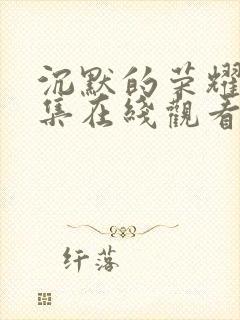 沉默的荣耀
集在线觀看
纤落